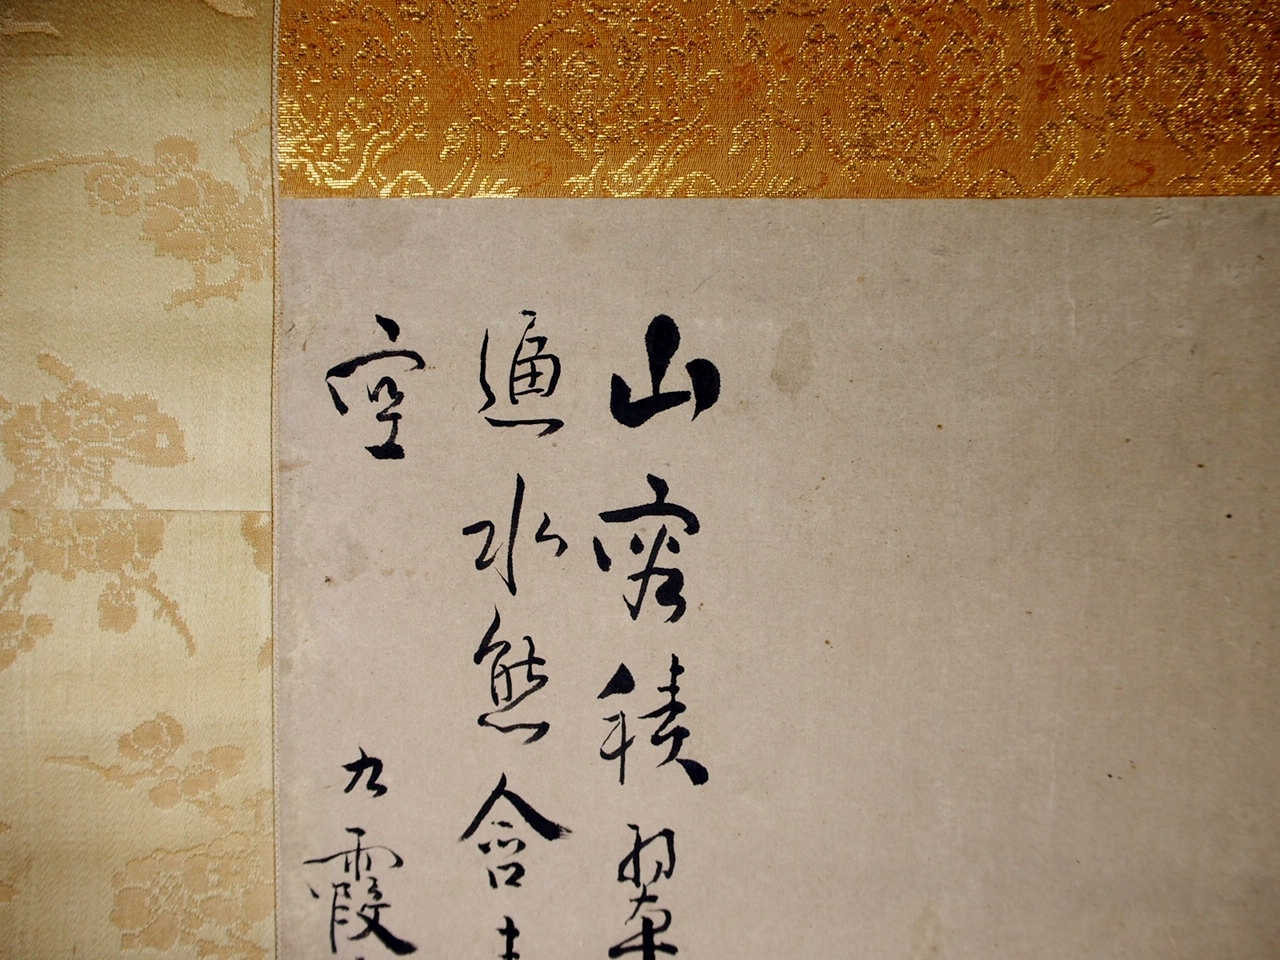 山容積翠
遍水態含
空
九霞